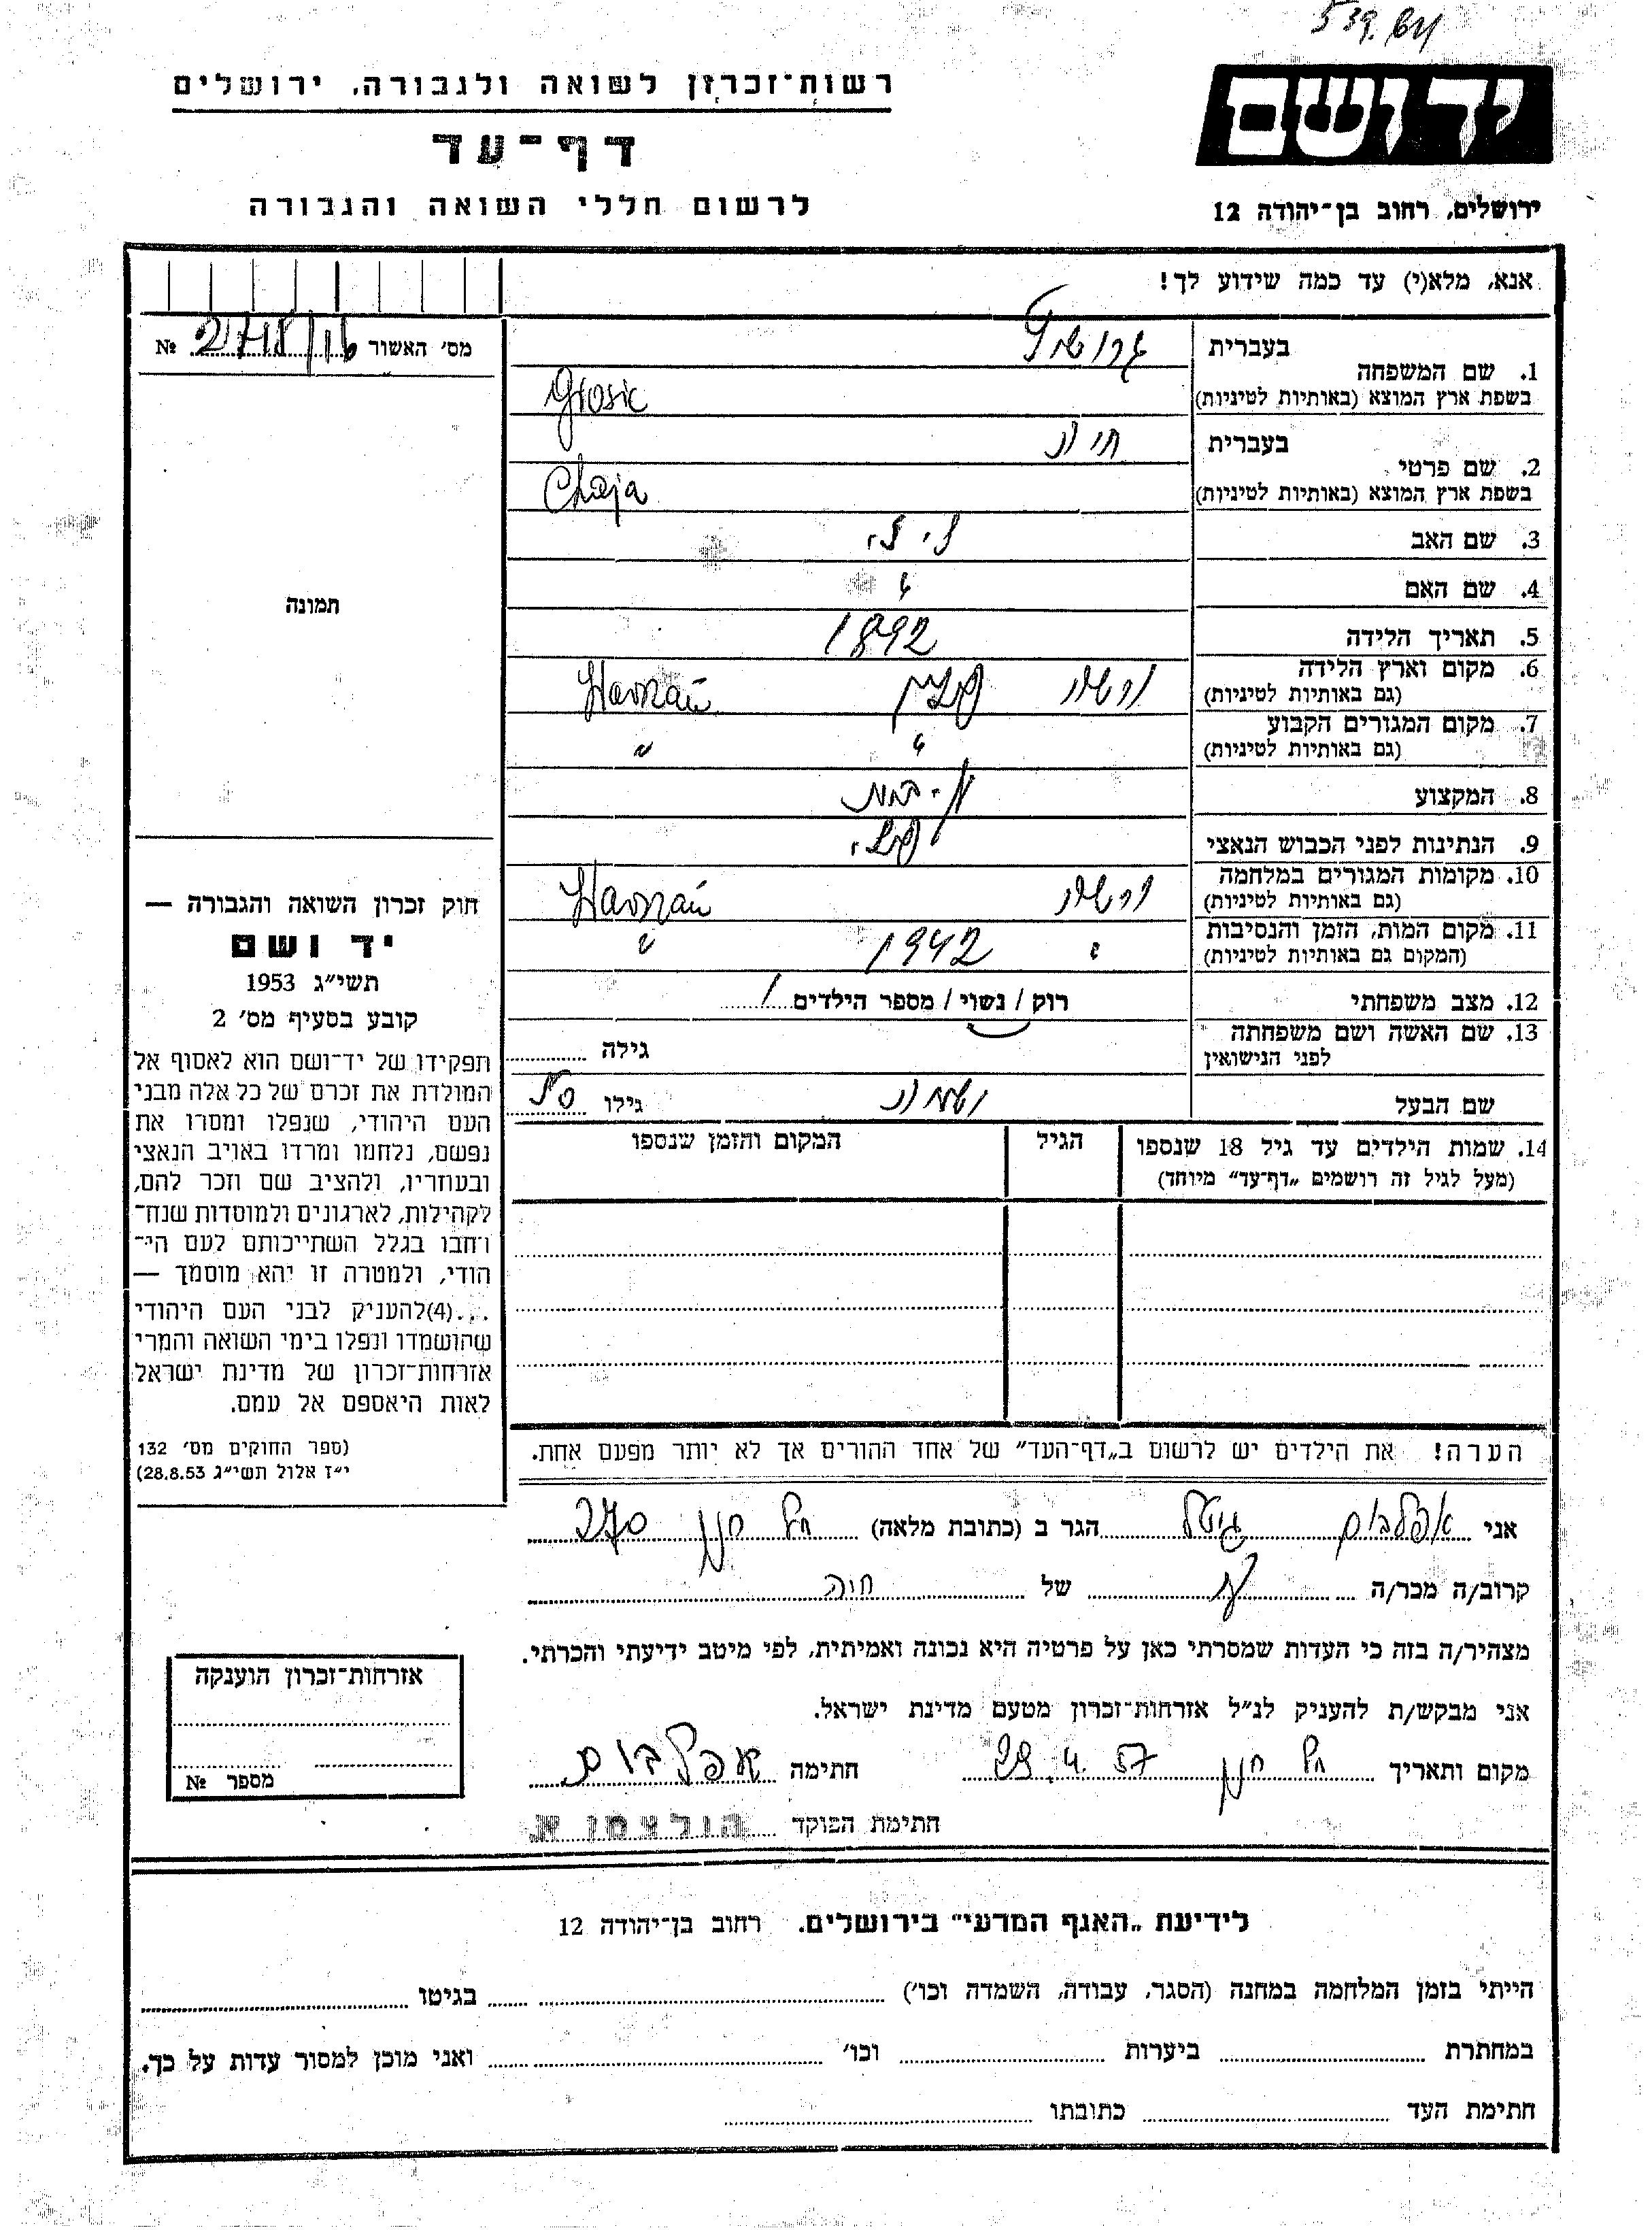 רשות־זכרון לשואה ולגבורה, ירושלים
דף־עד
לרשום חללי השואה והגבורה
יד ושם
ירושלים, רחוב בן־יהודה 12
אנא, מלא(י) עד כמה שידוע לך!
מס׳ האשור №
בעברית
1. שם המשפחה
בשפת ארץ המוצא (באותיות לטיניות)
בעברית
2. שם פרטי
בשפת ארץ המוצא (באותיות לטיניות) Chaja
3. שם האב
4. שם האם "
5. תאריך הלידה 1892
6. מקום וארץ הלידה ורשה פולין
(גם באותיות לטיניות)
7. מקום המגורים הקבוע " "
(גם באותיות לטיניות)
8. המקצוע
9. הנתינות לפני הכבוש הנאצי פולני
10. מקומות המגורים במלחמה ורשה
(גם באותיות לטיניות)
11. מקום המות, הזמן והנסיבות " 1942 "
(המקום גם באותיות לטיניות)
12. מצב משפחתי רוק / נשוי / מספר הילדים 1
13. שם האשה ושם משפחתה
לפני הנישואין גילה
שם הבעל גילו
14. שמות הילדים עד גיל 18 שנספו הגיל המקום והזמן שנספו
(מעל לגיל זה רושמים „דף־עד״ מיוחד)
תמונה
חוק זכרון השואה והגבורה —
יד ושם
תשי״ג 1953
קובע בסעיף מס׳ 2
תפקידו של יד־ושם הוא לאסוף אל
המולדת את זכרם של כל אלה מבני
העם היהודי, שנפלו ומסרו את
נפשם, נלחמו ומרדו באויב הנאצי
ובעוזריו, ולהציב שם וזכר להם,
לקהילות, לארגונים ולמוסדות שנח־
רחבו בגלל השתייכותם לעם הי־
הודי, ולמטרה זו יהא מוסמך —
...(4)להעניק לבני העם היהודי
שהושמדו ונפלו בימי השואה והמרי
אזרחות־זכרון של מדינת ישראל
לאות היאספם אל עמם.
(ספר החוקים מס׳ 132
י״ז אלול תשי״ג 28.8.53)
הערה! את הילדים יש לרשום ב„דף־העד״ של אחד ההורים אך לא יותר מפעם אחת.
אני אפלבוים גיטל הגר ב (כתובת מלאה) תל חנן 270
קרוב/ה מכר/ה של חיה
מצהיר/ה בזה כי העדות שמסרתי כאן על פרטיה היא נכונה ואמיתית, לפי מיטב ידיעתי והכרתי.
אני מבקש/ת להעניק לנ״ל אזרחות־זכרון מטעם מדינת ישראל.
מקום ותאריך תל חנן 29.4.57 חתימה אפלבוים
חתימת הפוקד הולצמן א
אזרחות־זכרון הוענקה
מספר №
לידיעת „האגף המדעי״ בירושלים, רחוב בן־יהודה 12
הייתי בזמן המלחמה במחנה (הסגר, עבודה, השמדה וכו׳) בגיטו
במחתרת ביערות וכו׳ ואני מוכן למסור עדות על כך.
חתימת העד כתובתו